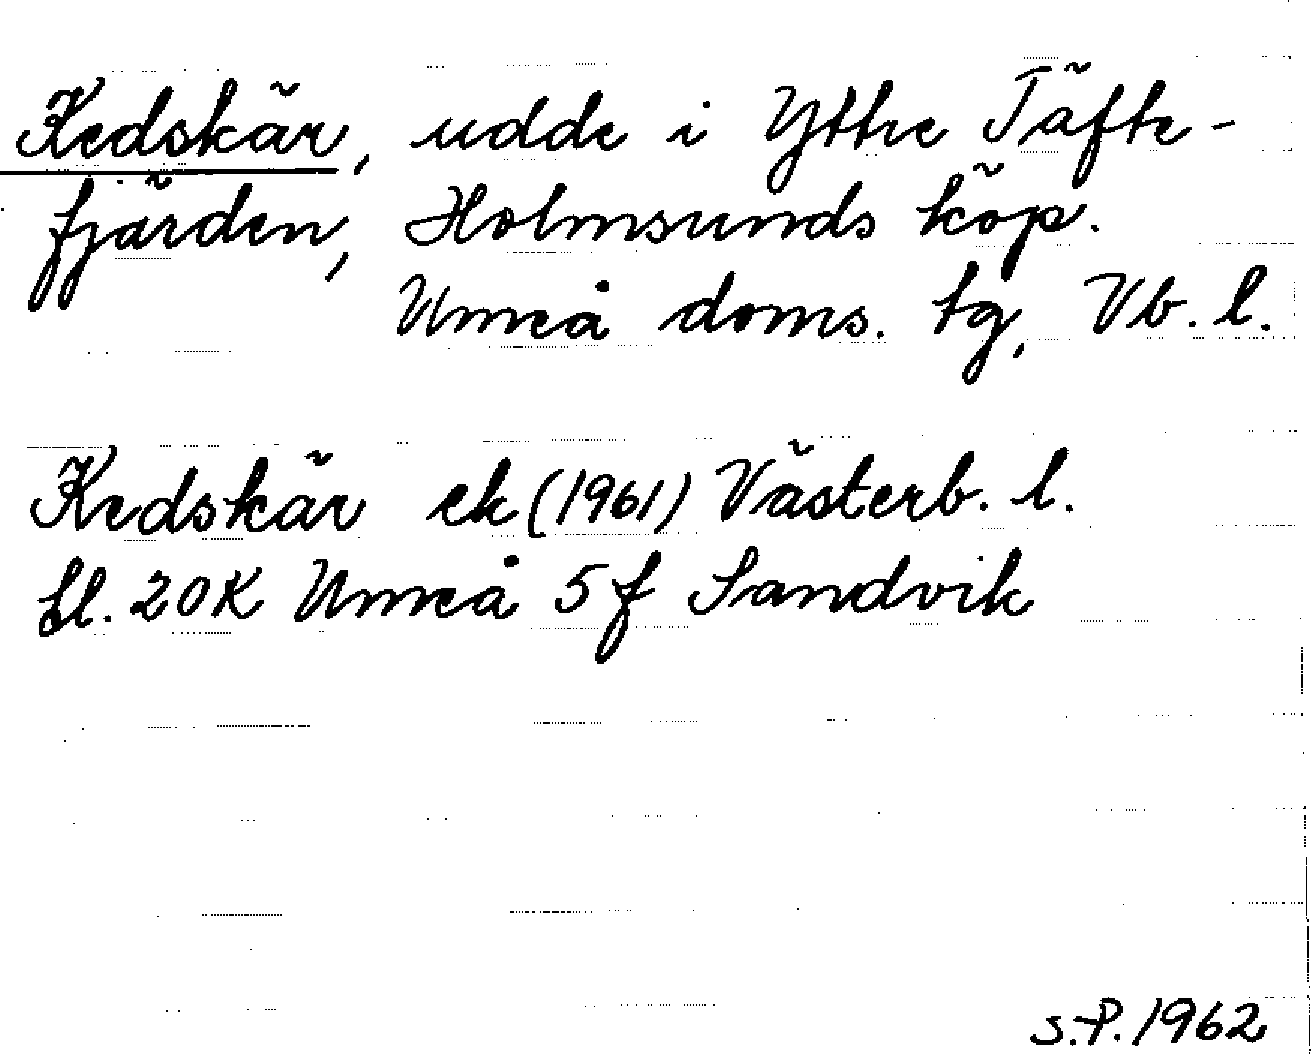 Kedskär, udde i Yttre Täfte-
fjärden, Holmsunds köp.
Umeå doms. tg, Vb. l.
Kedskär ek (1961) Västerb. l.
bl. 20K Umeå 5f Sandvik
S.-P. 1962